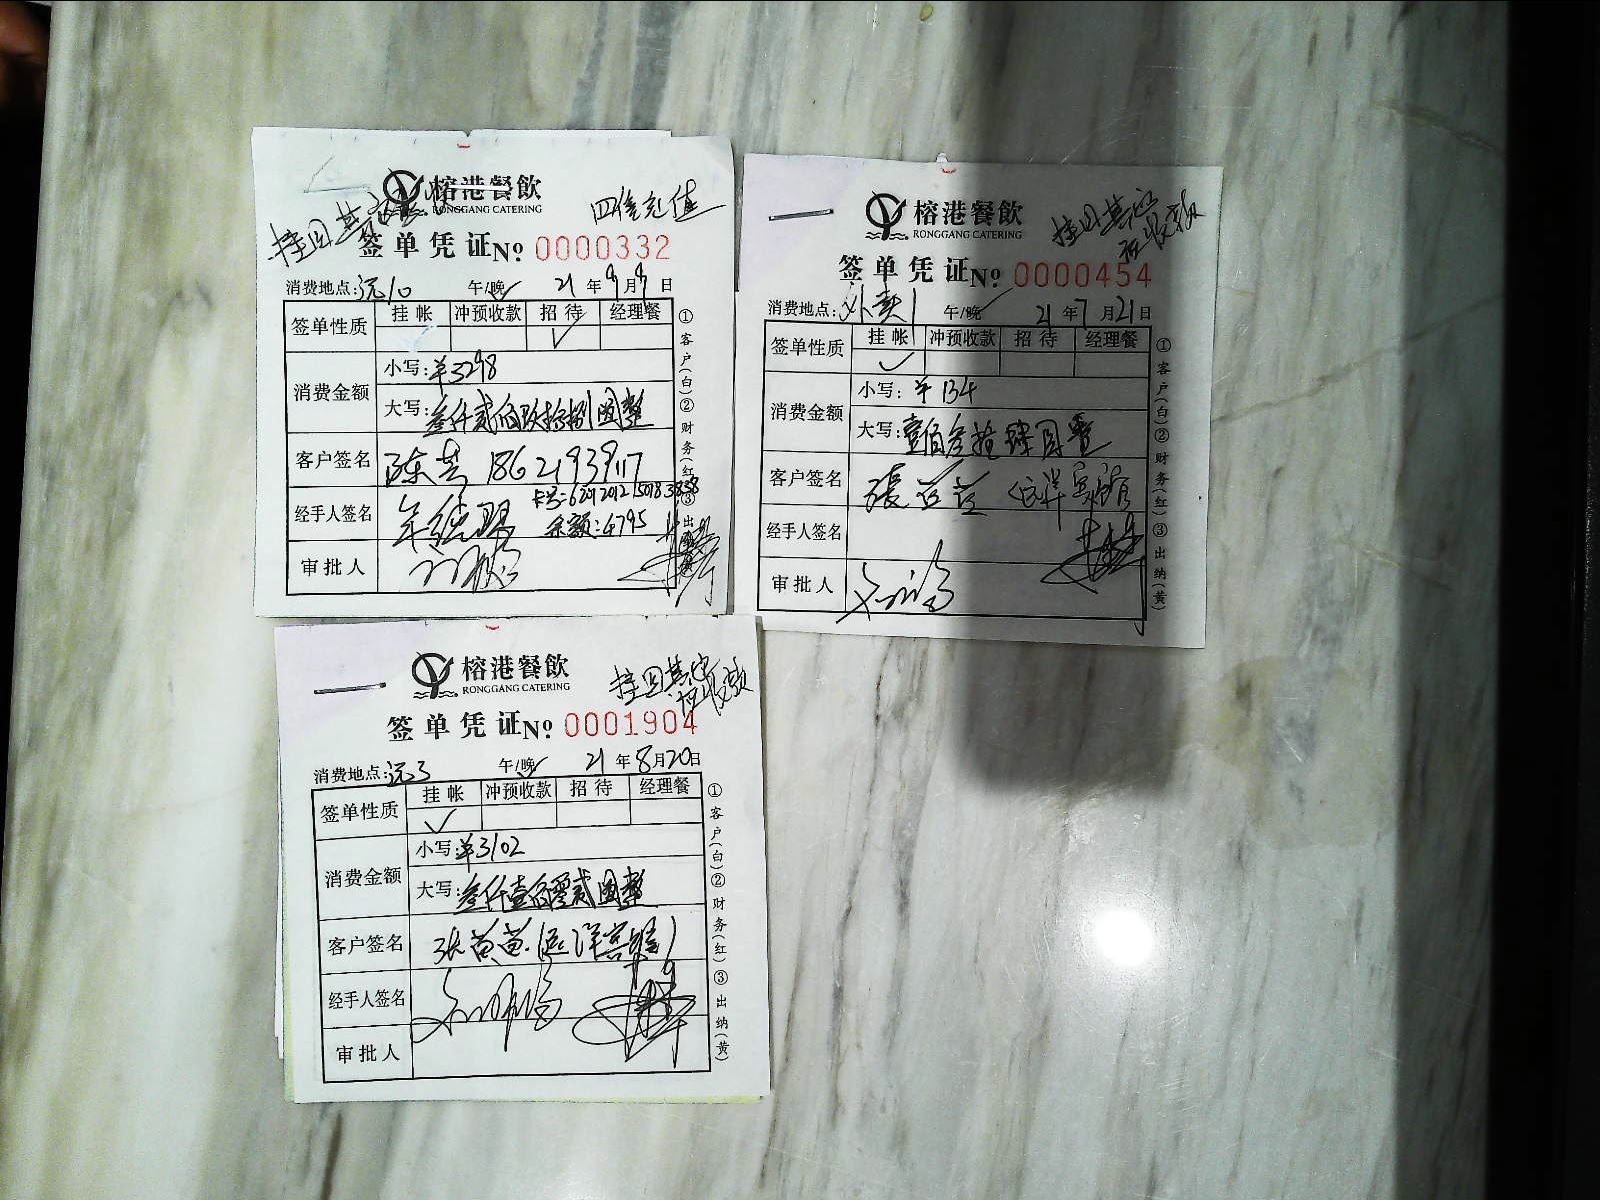 榕港餐飲
RONGGANG CATERING
四倍充值
签单凭证 No 0000332
消费地点: 远10 午/晚 21年9月9日
签单性质 挂帐 冲预收款 招待 经理餐
消费金额 小写: ¥3298
大写: 叁仟贰佰玖拾捌圆整
客户签名 陈芸 18621939117
经手人签名
余额: 4795
审批人
①客户(白)②财务(红)③出纳(黄)
榕港餐飲
RONGGANG CATERING
挂回其它
应收款
签单凭证 No 0000454
消费地点: 外卖1 午/晚 21年7月21日
签单性质 挂帐 冲预收款 招待 经理餐
消费金额 小写: ¥134
大写: 壹佰叁拾肆圆整
客户签名 張苗苗 (远洋宾馆)
经手人签名
审批人
①客户(白)②财务(红)③出纳(黄)
榕港餐飲
RONGGANG CATERING
挂回其它
应收款
签单凭证 No 0001904
消费地点: 远3 午/晚 21年8月20日
签单性质 挂帐 冲预收款 招待 经理餐
消费金额 小写: ¥3102
大写: 叁仟壹佰零贰圆整
客户签名 张苗苗.(远洋宾馆)
经手人签名
审批人
①客户(白)②财务(红)③出纳(黄)